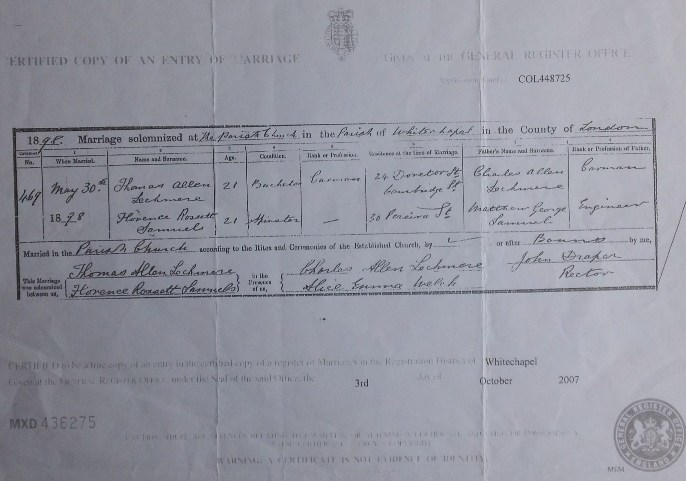 CERTIFIED COPY OF AN ENTRY OF MARRIAGE GIVEN AT THE GENERAL REGISTER OFFICE
COL448725
1898. Marriage solemnized at The Parish Church in the Parish of Whitechapel in the County of London
No. When Married. Name and Surname. Age. Condition. Rank or Profession. Residence at the time of Marriage. Father's Name and Surname. Rank or Profession of Father.
469 May 30th Thomas Allen Lechmere 21 Bachelor Carman 24 Cambridge Charles Allen Lechmere Carman
1898 Florence Rossett Samuels 21 Spinster — 30 Pereira St Matthew George Samuels Engineer
Married in the Parish Church according to the Rites and Ceremonies of the Established Church, by or after Banns by me,
This Marriage was solemnized between us, Thomas Allen Lechmere in the Presence of us, Charles Allen Lechmere John Draper
Florence Rossett Samuels Alice Emma Welch Rector
CERTIFIED to be a true copy of an entry in the certified copy of a register of Marriages in the Registration District of Whitechapel
Given at the GENERAL REGISTER OFFICE, under the Seal of the said Office, the 3rd day of October 2007
MXD 436275
WARNING: A CERTIFICATE IS NOT EVIDENCE OF IDENTITY.
GENERAL REGISTER OFFICE ENGLAND